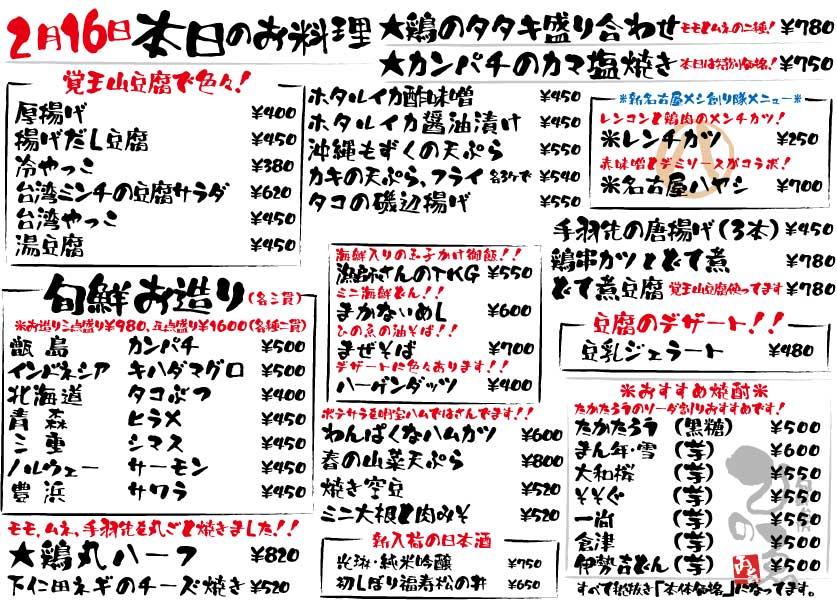 2月16日 本日のお料理
★鶏のタタキ盛り合わせ モモとムネの二種! ¥780
★カンパチのカマ塩焼き 本日は特別価格! ¥750
覚王山豆腐で色々!
厚揚げ ¥400
揚げだし豆腐 ¥450
冷やっこ ¥380
台湾ミンチの豆腐サラダ ¥620
台湾やっこ ¥450
湯豆腐 ¥450
旬鮮お造り(各三貫)
※お造り三点盛り¥980、五点盛り¥1600(各種二貫)
甑島 カンパチ ¥500
インドネシア キハダマグロ ¥500
北海道 タコぶつ ¥400
青森 ヒラメ ¥450
三重 シマス ¥450
ノルウェー サーモン ¥450
豊浜 サワラ ¥450
モモ、ムネ、手羽先を丸ごと焼きました!!
★鶏丸ハーフ ¥820
下仁田ネギのチーズ焼き ¥520
ホタルイカ酢味噌 ¥450
ホタルイカ醤油漬け ¥450
沖縄もずくの天ぷら ¥550
カキの天ぷら、フライ 各3ケで ¥540
タコの磯辺揚げ ¥550
海鮮入りの玉子かけ御飯!!
漁師さんのTKG ¥550
ミニ海鮮どん!!
まかないめし ¥600
ひの魚の油そば!!
まぜそば ¥700
デザートに色々あります!!
ハーゲンダッツ ¥400
ポテサラを明宝ハムではさんでます!!
わんぱくなハムカツ ¥600
春の山菜天ぷら ¥800
焼き空豆 ¥520
ミニ大根と肉みそ ¥520
新入荷の日本酒
純米吟醸 ¥750
初しぼり福寿松の井 ¥650
※新名古屋メシ創り隊メニュー※
レンコンと鶏肉のメンチカツ!
※レンチカツ ¥250
赤味噌とデミソースがコラボ!
※名古屋ハヤシ ¥700
手羽先の唐揚げ(3本) ¥450
鶏串カツとどて煮 ¥780
どて煮豆腐 覚王山豆腐使ってます ¥780
豆腐のデザート!!
豆乳ジェラート ¥480
※おすすめ焼酎※
たかたろうのソーダ割りおすすめです!
たかたろう (黒糖) ¥500
まん年・雪 (芋) ¥600
大和桜 (芋) ¥550
そそぐ (芋) ¥550
一尚 (芋) ¥550
倉津 (芋) ¥500
伊勢吉どん(芋) ¥550
すべて税抜き「本体価格」になってます。